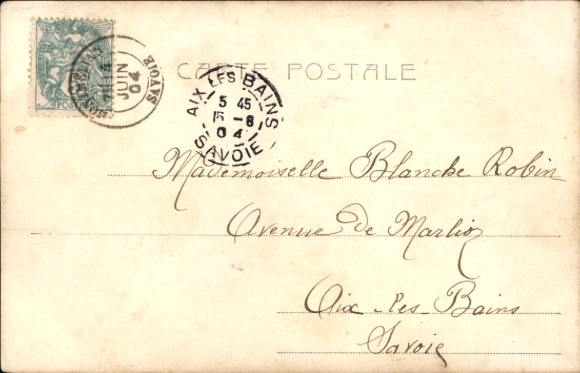 CARTE POSTALE
JUIN
04
SAVOIE
AIX LES BAINS
5 45
15 - 6
04
SAVOIE
Mademoiselle Blanche Robin
Avenue de Marlioz
Aix-les-Bains
Savoie